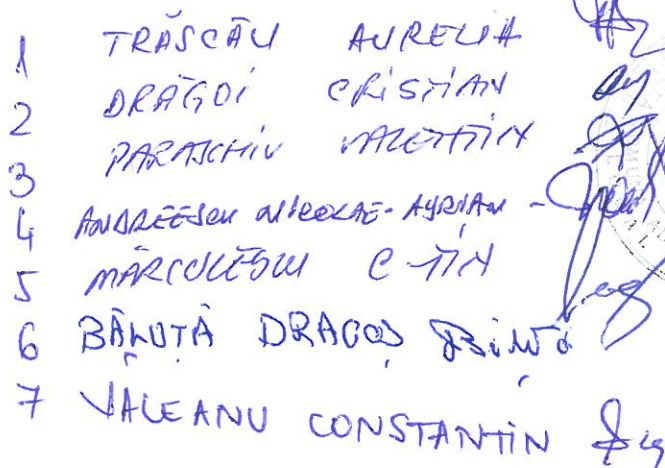 1 TRĂSCĂU AURELIA
2 DRĂGOI CRISTIAN
3 PARASCHIV VALENTIN
4 ANDREESCU NICOLAE-AURIAN -
5 MĂRCULESCU C-TIN
6 BĂLUȚĂ DRAGOȘ
7 VĂLEANU CONSTANTIN